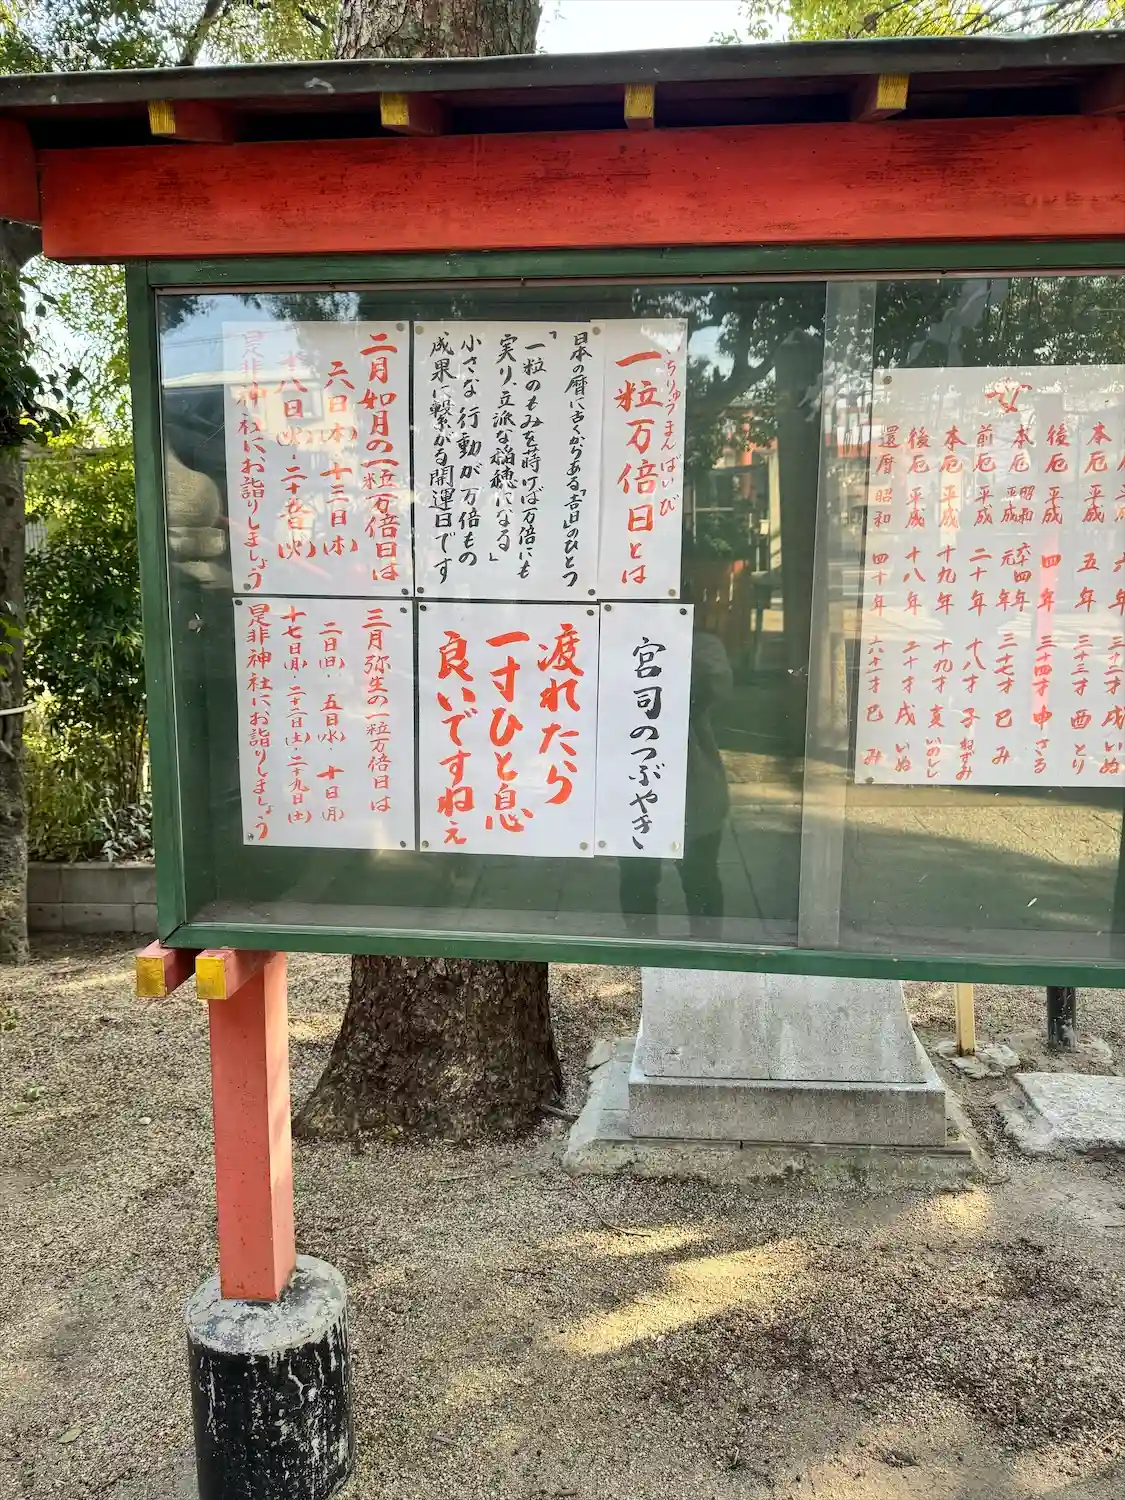 女
厄 平成 六年 三十二才 戌 いぬ
本厄 平成 五年 三十三才 酉 とり
後厄 平成 四年 三十四才 申 さる
本厄 昭和 六十四年 平成 元年 三十七才 巳 み
前厄 平成 二十年 十八才 子 ねずみ
本厄 平成 十九年 十九才 亥 いのしし
後厄 平成 十八年 二十才 戌 いぬ
還暦 昭和 四十年 六十才 巳 み
いちりゅうまんばいび
一粒万倍日とは
日本の暦に古くからある「吉日」のひとつ
「一粒のもみを蒔けば万倍にも
実り、立派な稲穂になる」
小さな行動が万倍もの
成果に繋がる開運日です
二月如月の一粒万倍日は
六日(木)・十三日(木)
十八日(火)・二十五日(火)
是非神社にお詣りしましょう
宮司のつぶやき
疲れたら
一寸ひと息
良いですねぇ
三月弥生の一粒万倍日は
二日(日)・五日(水)・十日(月)
十七日(月)・二十二日(土)・二十九日(土)
是非神社にお詣りしましょう